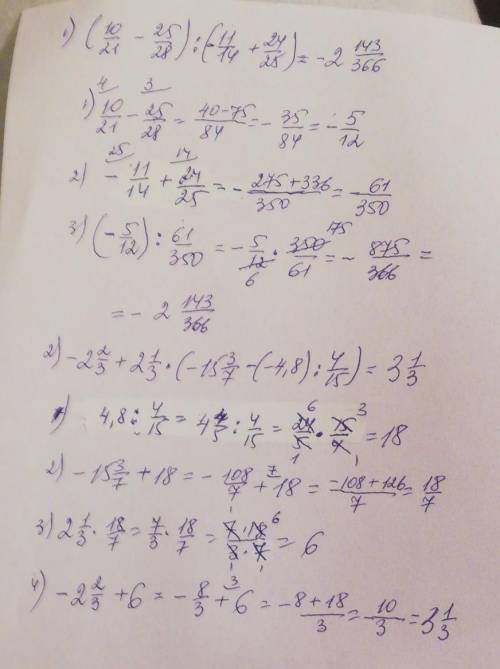 1) (10/21 - 25/28) : (-11/14 + 24/25) = -2 143/366
4 3
1) 10/21 - 25/28 = 40-75/84 = - 35/84 = - 5/12
25 14
2) - 11/14 + 24/25 = - 275+336/350 = 61/350
3) (- 5/12) : 61/350 = - 5/12 · 350/61 = - 875/366 =
6 175
= - 2 143/366
2) -2 2/3 + 2 1/3 · (-15 3/7 - (-4,8) : 4/15) = 3 1/3
1) 4,8 : 4/15 = 4 4/5 : 4/15 = 24/5 · 15/4 = 18
6 3 1 1
2) -15 3/7 + 18 = - 108/7 + 18 = -108+126/7 = 18/7
7
3) 2 1/3 · 18/7 = 7/3 · 18/7 = 7·18/3·7 = 6
1 6 1 1
4) -2 2/3 + 6 = - 8/3 + 6 = -8+18/3 = 10/3 = 3 1/3
3